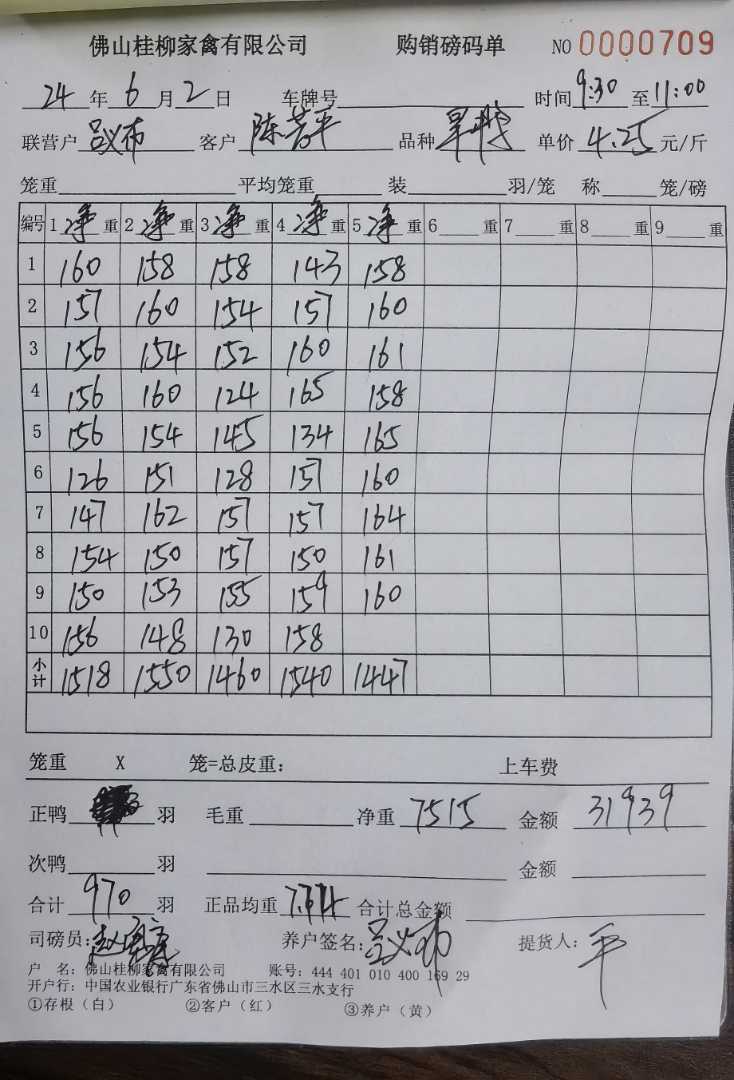 佛山桂柳家禽有限公司 购销磅码单 NO 0000709
24 年 6 月 2 日 车牌号 时间 9:30 至 11:00
联营户 吕义布 客户 陈芳平 品种 旱鸭 单价 4.25 元/斤
笼重 平均笼重 装 羽/笼 称 笼/磅
编号 1 净 重 2 净 重 3 净 重 4 净 重 5 净 重 6 重 7 重 8 重 9 重
1 160 158 158 143 158
2 157 160 154 157 160
3 156 154 152 160 161
4 156 160 124 165 158
5 156 154 145 134 165
6 126 151 128 157 160
7 147 162 157 157 164
8 154 150 157 150 161
9 150 153 155 159 160
10 156 148 130 158
小计 1518 1550 1460 1540 1447
笼重 X 笼=总皮重: 上车费
正鸭 羽 毛重 净重 7515 金额 31939
次鸭 羽 金额
合计 970 羽 正品均重 7.74 合计总金额
司磅员: 养户签名: 吕义布 提货人: 平
户 名: 佛山桂柳家禽有限公司 账号: 444 401 010 400 169 29
开户行: 中国农业银行广东省佛山市三水区三水支行
①存根(白) ②客户(红) ③养户(黄)